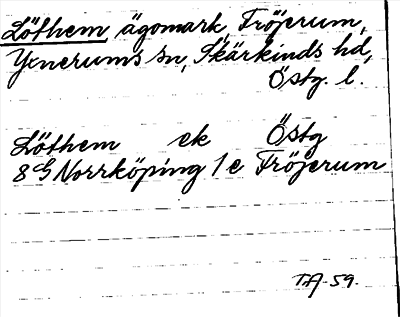 Löthem, ägomark, Fröjerum,
Yxnerums sn, Skärkinds hd,
Östg. l.
Löthem ek Östg
8G Norrköping 1e Fröjerum
TA 59.